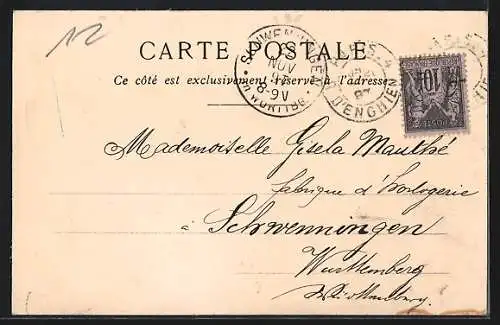 CARTE POSTALE
Ce côté est exclusivement réservé à l'adresse
SCHWENNINGEN
NOV
97
8-9 V
WÜRTTBG.
PARIS
D'ENGHIEN
97
10
Mademoiselle Gisela Mauthé
fabrique d'horlogerie
à Schwenningen
Wurttemberg